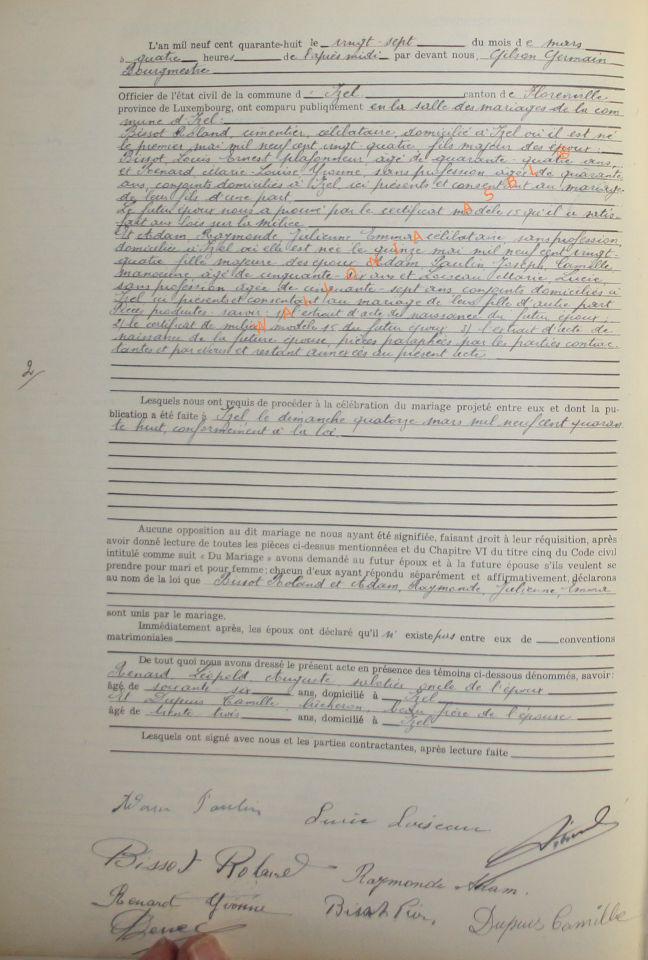 L'an mil neuf cent quarante-huit le vingt-sept du mois de mars
à quatre heures de l'après midi par devant nous, Gilson Germain
Bourgmestre
Officier de l'état civil de la commune d'Izel canton de Florenville
province de Luxembourg, ont comparu publiquement en la salle des mariages de la com
mune d'Izel:
Bissot Roland, cimentier, célibataire, domicilié à Izel où il est né
le premier mai mil neuf cent vingt-quatre, fils majeur des époux:
Bissot, Louis Ernest plafonneur, âgé de quarante-quatre ans,
et Renard Marie-Louise Yvonne, sans profession âgée de quarante
ans, conjoints domiciliés à Izel, ici présents et consentant au mariage
de leur fils d'une part,
Le futur époux nous a prouvé par le certificat modèle 15 qu'il a satis-
fait aux lois sur la milice
et Adam Raymonde Julienne Emma célibataire, sans profession,
domiciliée à Izel où elle est née le quinze mai mil neuf cent vingt-
quatre fille majeure des époux Adam Paulin Joseph Camille,
manœuvre âgé de cinquante- ans et Loiseau Marie Lucie,
sans profession âgée de cinquante-sept ans conjoints domiciliés à
Izel ici présents et consentant au mariage de leur fille d'autre part
Pièces produites savoir: 1) l'extrait d'acte de naissance du futur époux;
2) le certificat de milice modèle 15 du futur époux 3) l'extrait d'acte de
naissance de la future épouse, pièces paraphées par les parties contrac-
tantes et par Nous et restant annexées au présent acte
2/
Lesquels nous ont requis de procéder à la célébration du mariage projeté entre eux et dont la pu-
blication a été faite à Izel le dimanche quatorze mars mil neuf cent quaran
te huit, conformément à la loi.
Aucune opposition au dit mariage ne nous ayant été signifiée, faisant droit à leur réquisition, après
avoir donné lecture de toutes les pièces ci-dessus mentionnées et du Chapitre VI du titre cinq du Code civil
intitulé comme suit « Du Mariage » avons demandé au futur époux et à la future épouse s'ils veulent se
prendre pour mari et pour femme: chacun d'eux ayant répondu séparément et affirmativement, déclarons
au nom de la loi que Bissot Roland et Adam, Raymonde, Julienne, Emma
sont unis par le mariage.
Immédiatement après, les époux ont déclaré qu'il n'existe pas entre eux de conventions
matrimoniales
De tout quoi nous avons dressé le présent acte en présence des témoins ci-dessous dénommés, savoir:
Renard, Léopold, Auguste, sabotier, oncle de l'époux
âgé de soixante six ans, domicilié à Izel
et Dupuis Camille, bûcheron, beau frère de l'épouse
âgé de trente trois ans, domicilié à Izel
Lesquels ont signé avec nous et les parties contractantes, après lecture faite
Adam Paulin Lucie Loiseau
Bissot Roland Raymonde Adam.
Renard Yvonne Bissot Dupuis Camille
WALLONIA ASBL